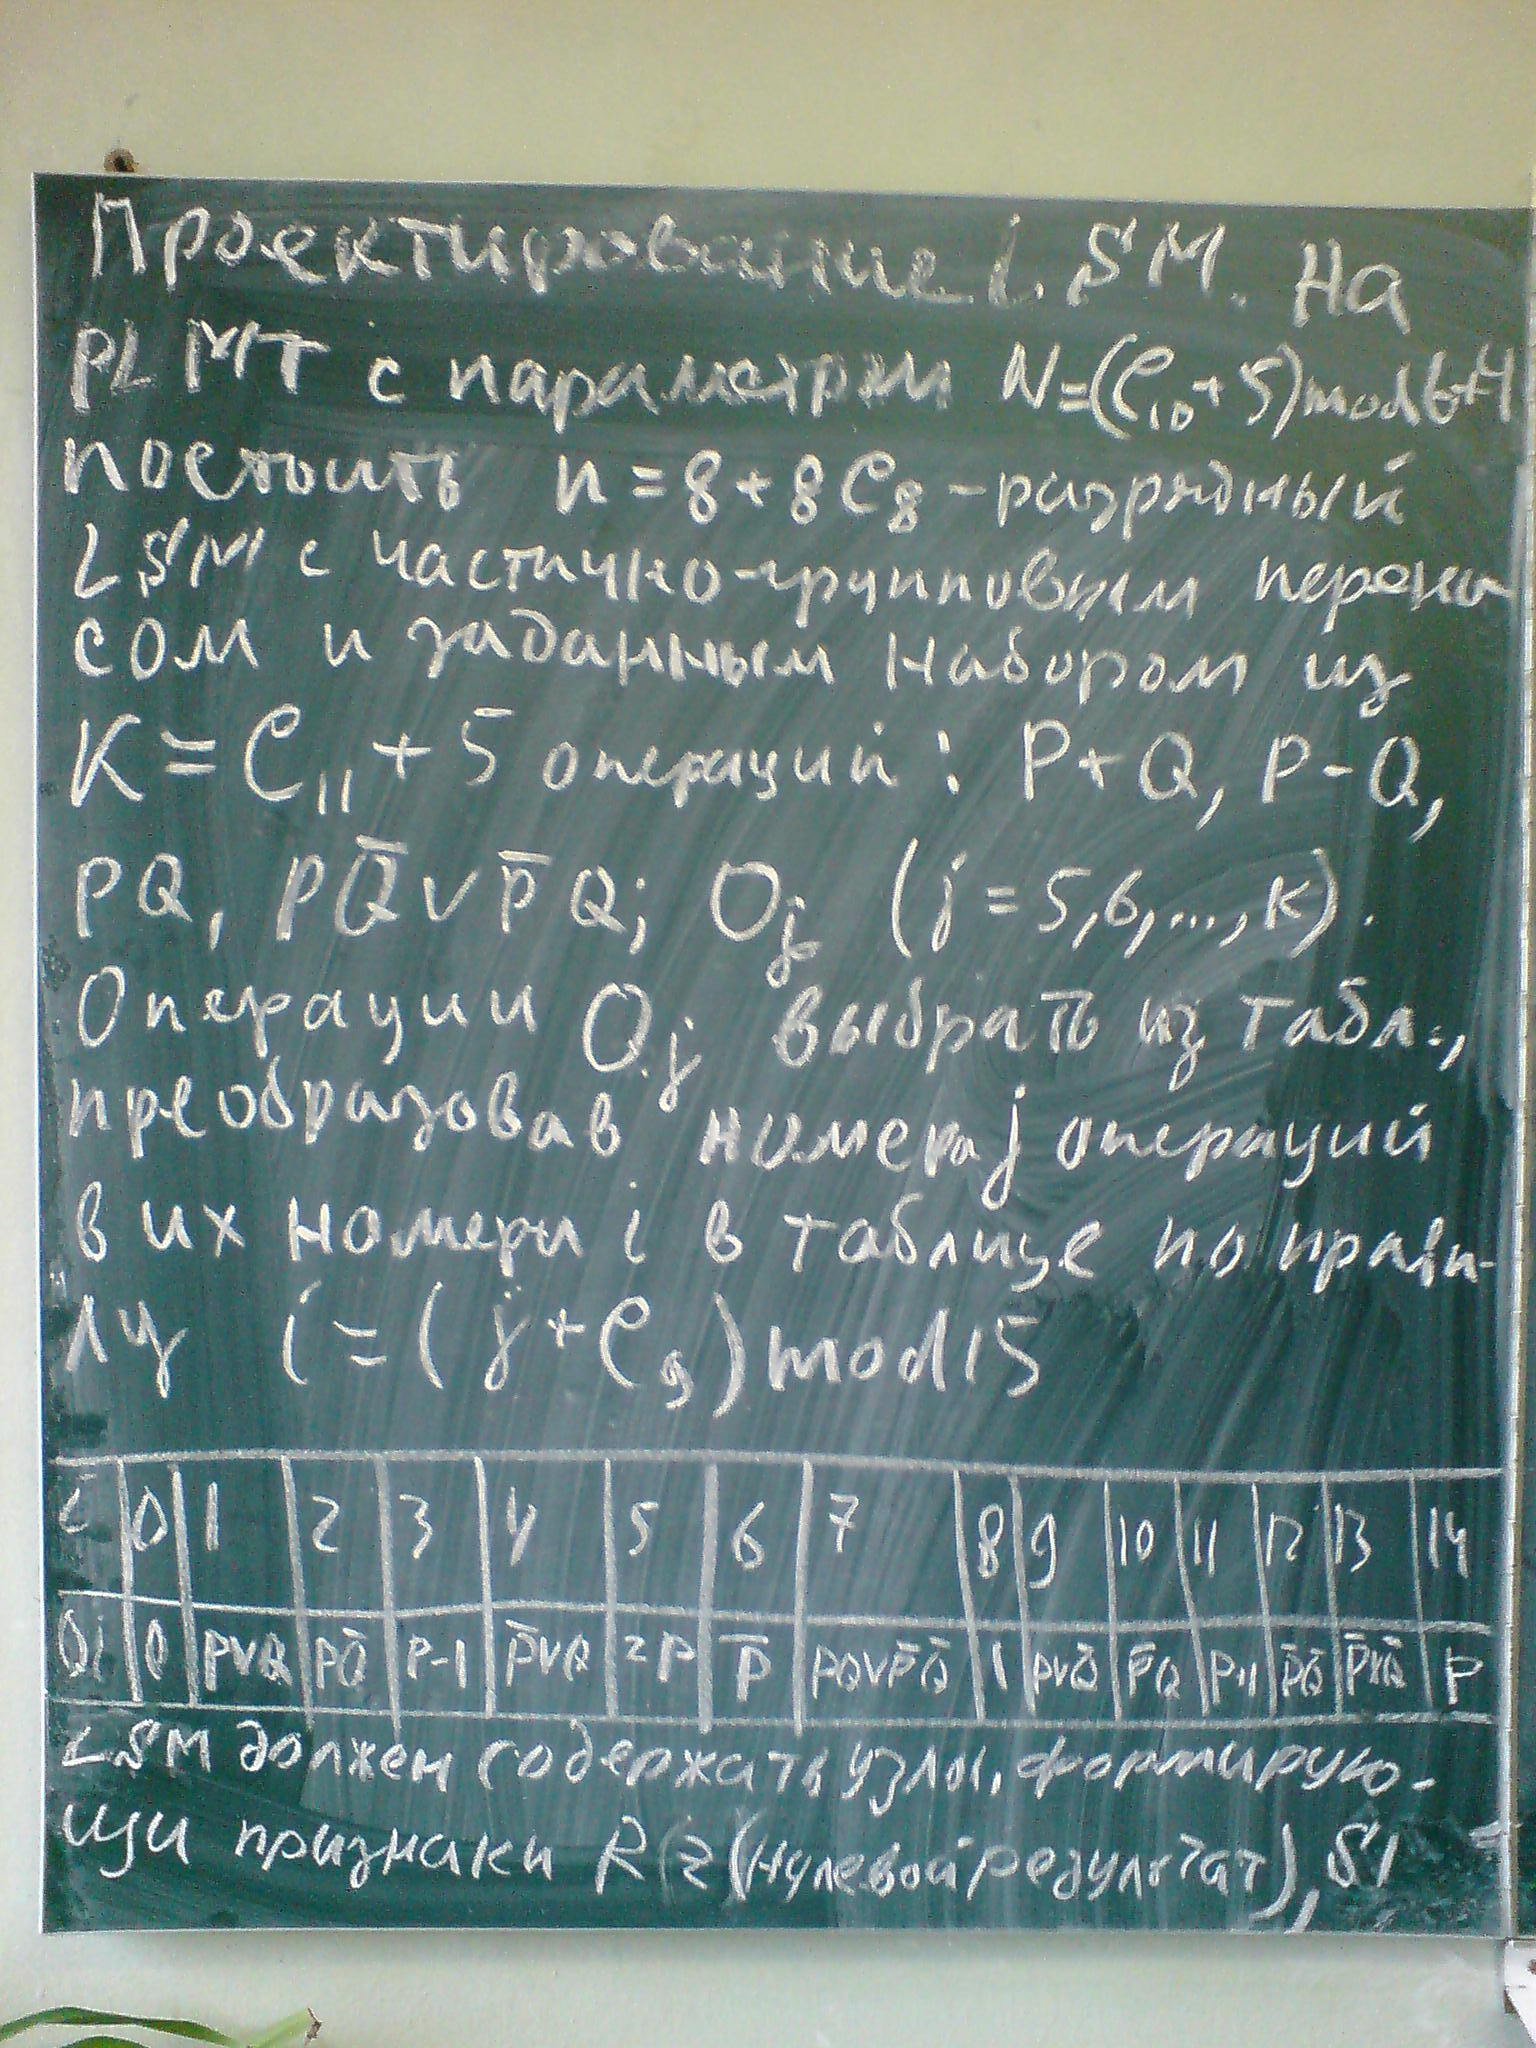 Проектирование LSM. на
PLMT с параметром N=(C₁₀+5)mod6+4
постоить n=8+8C₈-разрядный
LSM с частично-групповым перено
сом и заданным набором из
K=C₁₁+5 операций: P+Q, P-Q,
PQ, PQ̄∨P̄Q; Oj (j=5,6,...,K).
Операции Oj выбрать из табл.,
преобразовав номера j операций
в их номера i в таблице по прави-
лу i=(j+C₉)mod15
i 0 1 2 3 4 5 6 7 8 9 10 11 12 13 14
Oi 0 P∨Q PQ̄ P-1 P̄∨Q 2P P̄ PQ∨P̄Q̄ 1 P∨Q̄ P̄Q P+1 P̄Q̄ P̄∨Q̄ P
LSM должен содержать узлы, формирую-
щи признаки RZ (нулевой результат), SI